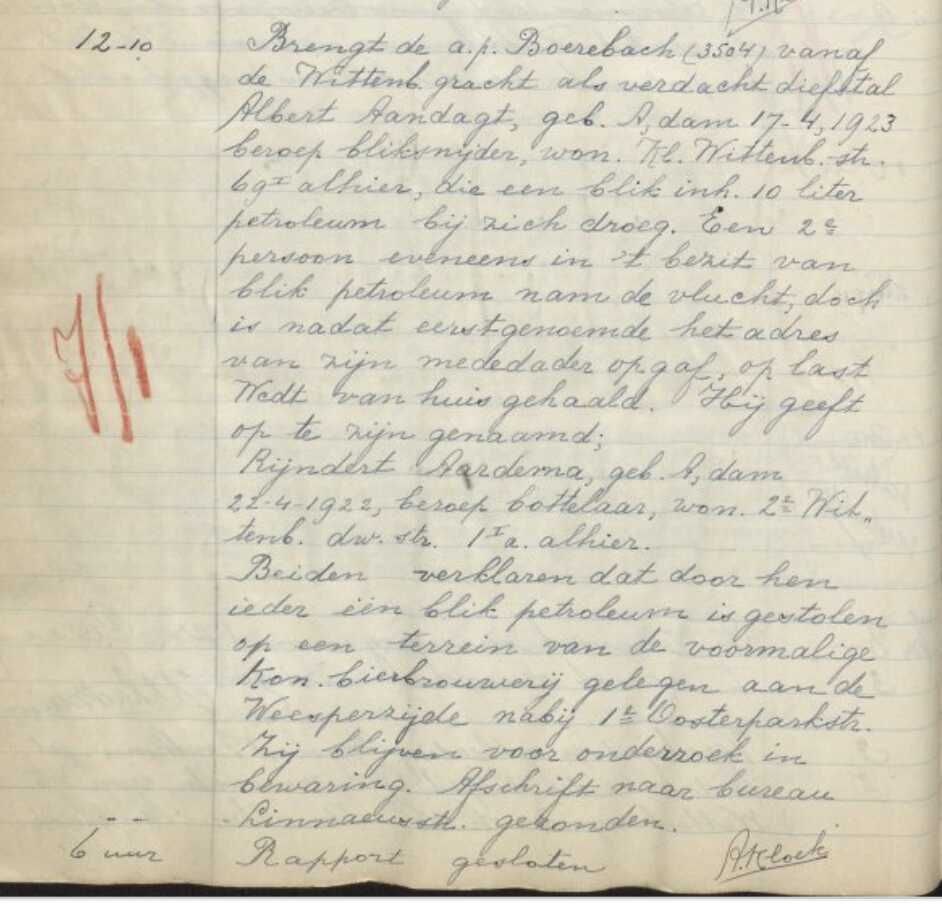 12-10 Brengt de a.p. Boerebach (3504) vanaf
de Wittenb. gracht als verdacht diefstal
Albert Aandagt, geb. A,dam 17-4, 1923
beroep bliksnijder, won. Kl. Wittenb.-str.
69 I alhier, die een blik inh. 10 liter
petroleum bij zich droeg. Een 2e
persoon eveneens in 't bezit van
blik petroleum nam de vlucht, doch
is nadat eerstgenoemde het adres
van zijn mededader opgaf, op last
Wcdt van huis gehaald. Hij geeft
op te zijn genaamd;
Rijndert Aardema, geb. A,dam
22-4-1922, beroep bottelaar, won. 2e Wit„
tenb. dw. str. 1 I a. alhier.
Beiden verklaren dat door hen
ieder één blik petroleum is gestolen
op een terrein van de voormalige
Kon. bierbrouwerij gelegen aan de
Weesperzijde nabij 1e Oosterparkstr.
Zij blijven voor onderzoek in
bewaring. Afschrift naar bureau
Linnaeusstr. gezonden.
6 uur Rapport gesloten A. Kloek